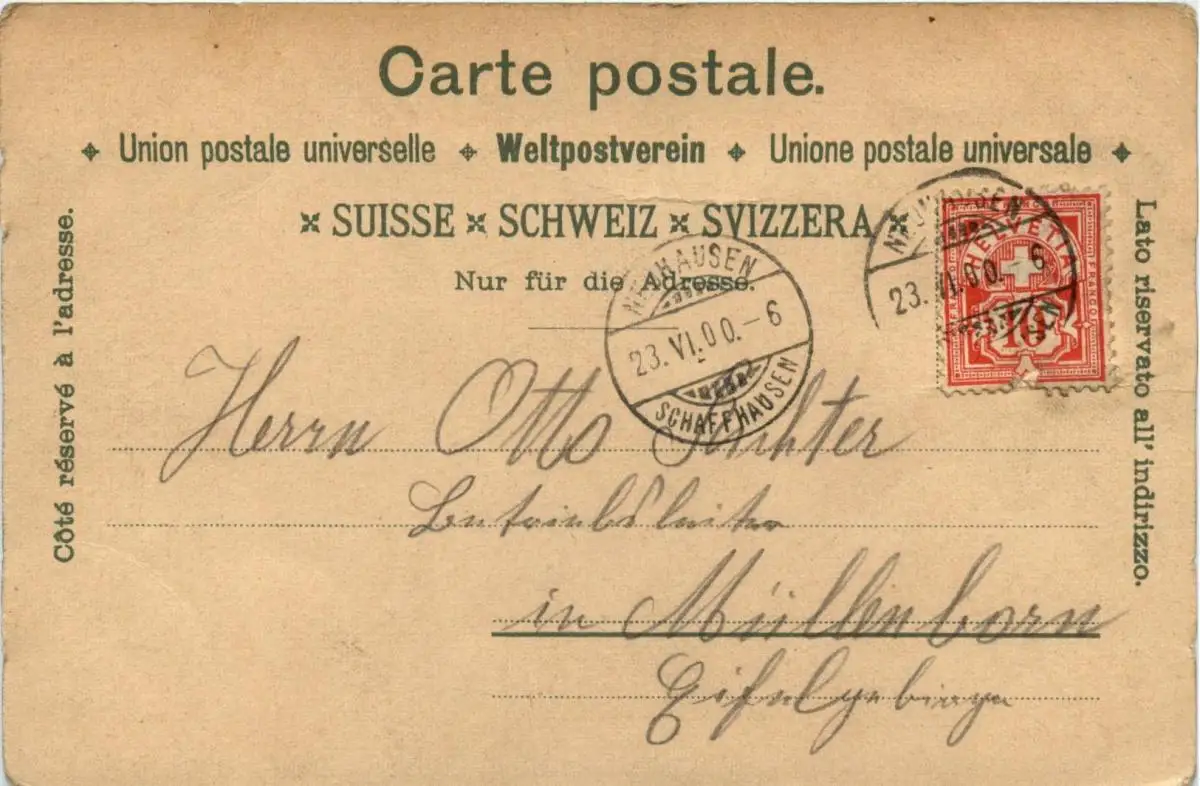 Carte postale.
Union postale universelle Weltpostverein Unione postale universale
SUISSE SCHWEIZ SVIZZERA
Nur für die Adresse.
Côté réservé à l'adresse.
Lato riservato all' indirizzo.
NEUHAUSEN
23. VI. 00. – 6
SCHAFFHAUSEN
NEUHAUSEN
23. VI. 00. – 6
HELVETIA
FRANCO
10
Herrn Otto Richter
Betriebsleiter
in Müllenborn
Eifelgebirge